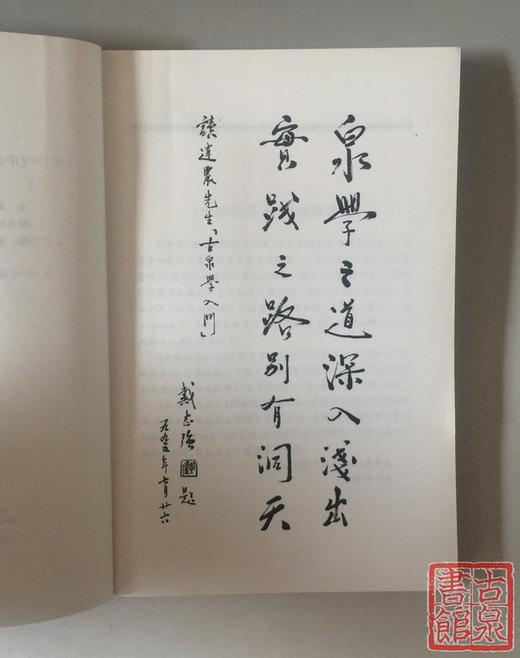 泉學之道深入淺出
實踐之路別有洞天
讀達農先生「古泉學入門」
戴志強題
古泉
書館